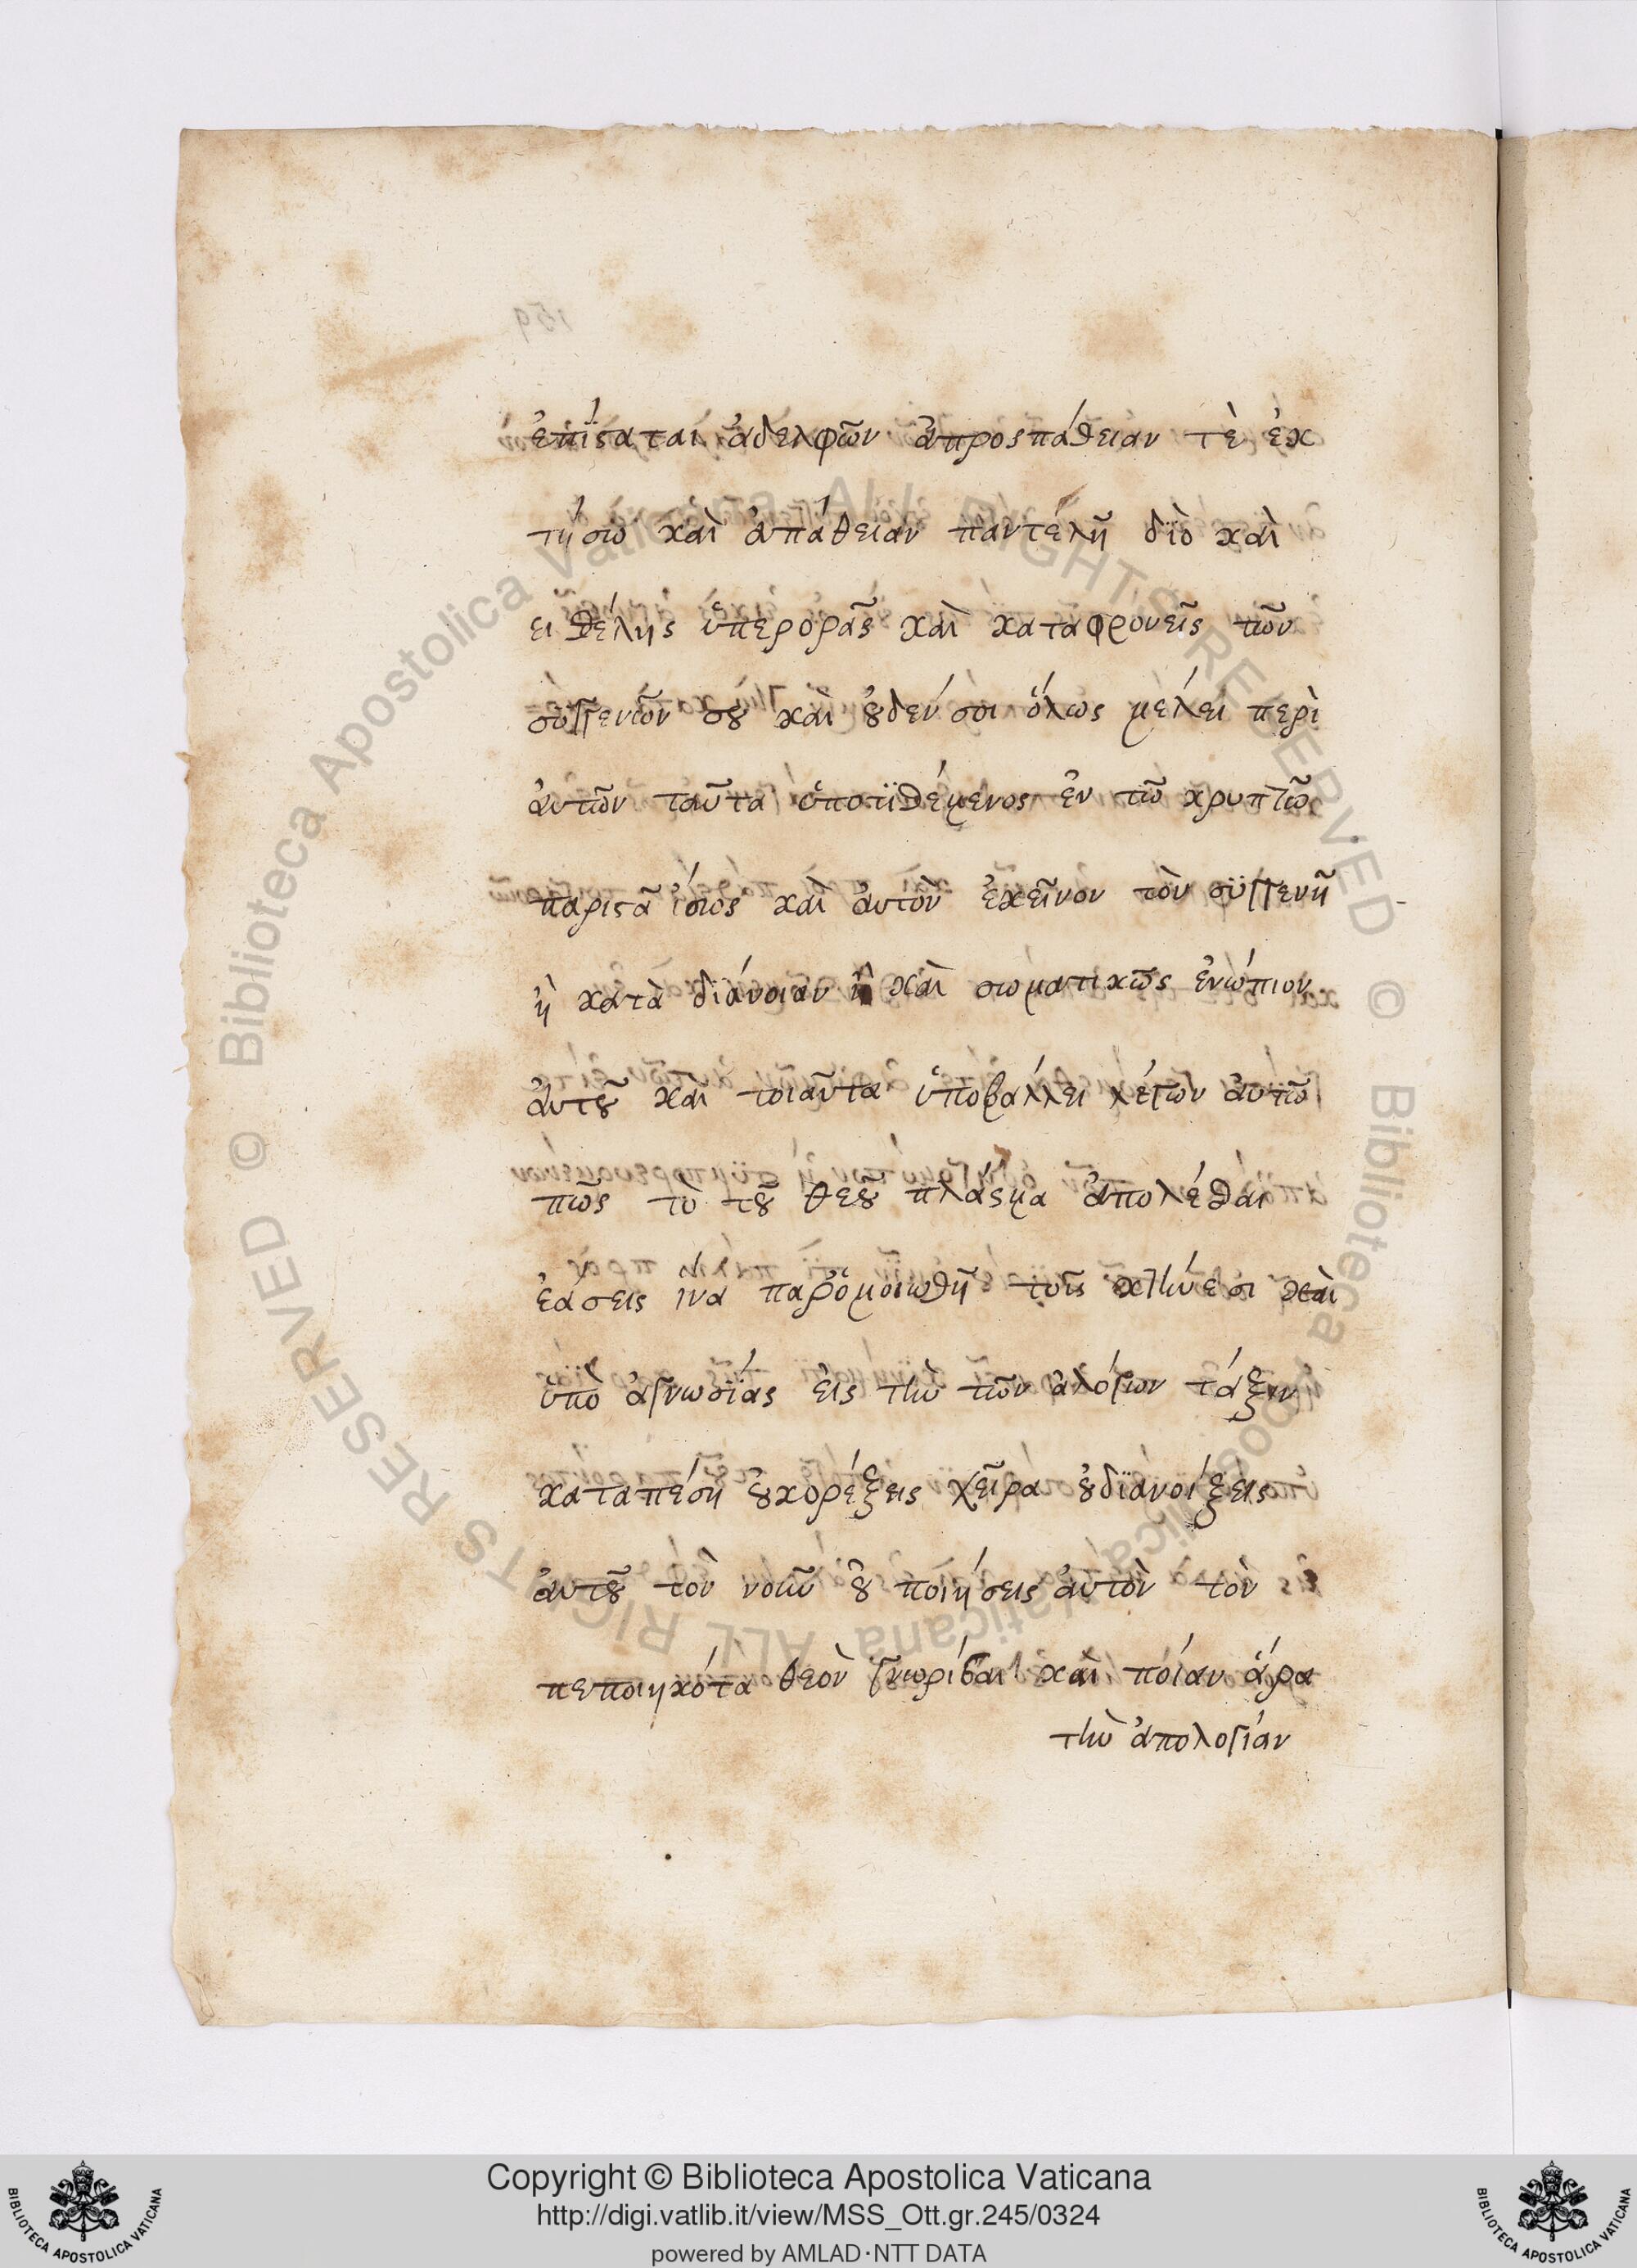 ἐπίσταται ἀδελφῶν ἀπροσπάθειαν τὲ ἐκ
τήσω καὶ ἀπάθειαν παντέλῆ διὸ καὶ
ει θέλης ὑπερορᾶς καὶ καταφρονεῖς τῶν
συγγενῶν σου καὶ οὐδέν σοι ὅλως μέλει περὶ
ἀυτῶν ταῦτα ὑποτϊθέμενος ἐν τῶ κρυπτῶ
παριστᾶ ἴσως καὶ ἀυτὸν ἐκεῖνον τὸν συγγενῆ
ἢ κατὰ διάνοιαν ἢ καὶ σωματικῶς ἐνώπιον
ἀυτοῦ καῖ τοιαῦτα ὑποβάλλει λέγων ἀυτῶ
πῶς τὸ τοῦ θεοῦ πλάσμα ἀπολέσθαι
ἐάσεις ἵνα παρομοιωθῆ τοῖς κτήνεσι καὶ
ὑπὸ ἀγνωσίας εἰς τὴν τῶν ἀλόγων τάξιν
καταπέση οὐκορέξεις χεῖρα οὐδϊάνοίξεις
ἀυτοῦ τὸν νοῦν οὐ ποιήσεις ἀυτὸν τὸν
πεποιηκότα θεὸν γνωρίσαι καὶ ποίαν ἄρα
τὴν ἀπολογίαν
159
© Biblioteca Apostolica Vaticana ALL RIGHTS RESERVED
© Biblioteca Apostolica Vaticana ALL RIGHTS RESERVED
Copyright © Biblioteca Apostolica Vaticana
http://digi.vatlib.it/view/MSS_Ott.gr.245/0324
powered by AMLAD·NTT DATA
BIBLIOTECA APOSTOLICA VATICANA
BIBLIOTECA APOSTOLICA VATICANA